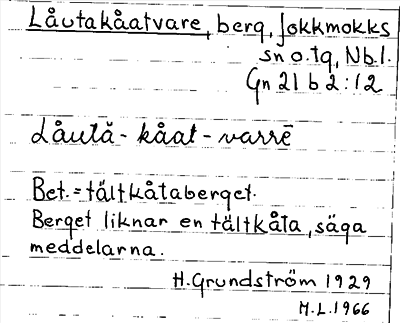 Låutakåatvare, berg, Jokkmokks
sn o. tg, Nb. l.
Gn 21 b 2:12
Låută - kåat - varrē
Bet. = tältkåtaberget.
Berget liknar en tältkåta, säga
meddelarna.
H. Grundström 1929
M.L. 1966